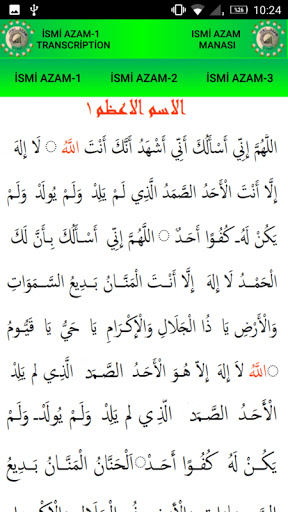 %26 10:24
İSMİ AZAM-1 TRANSCRİPTİON
İSMİ AZAM MANASI
İSMİ AZAM-1 İSMİ AZAM-2 İSMİ AZAM-3
الاسم الاعظم ١
اللَّهُمَّ إِنِّي أَسْأَلُكَ أَنِّي أَشْهَدُ أَنَّكَ أَنْتَ اللَّهُ لَا إِلهَ
إِلَّا أَنْتَ الْأَحَدُ الصَّمَدُ الَّذِي لَمْ يَلِدْ وَلَمْ يُولَدْ وَلَمْ
يَكُنْ لَهُ كُفُوًا أَحَدٌ اللَّهُمَّ إِنِّي أَسْأَلُكَ بِأَنَّ لَكَ
الْحَمْدُ لَا إِلهَ إِلَّا أَنْتَ الْمَنَّانُ بَدِيعُ السَّمَوَاتِ
وَالْأَرْضِ يَا ذُا الْجَلَالِ وَالْإِكْرَامِ يَا حَيُّ يَا قَيُّومُ
اللَّهُ لَا إِلَهَ إِلاَّ هُوَ الْأَحَدُ الصَّمَدُ الَّذِي لم يَلِدْ
الْأَحَدُ الصَّمَدُ الَّذِي لم يَلِدْ وَلَمْ يُولَدْ وَلَمْ
يَكُنْ لَهُ كُفُوًا أَحَدٌ الْحَنَّانُ الْمَنَّانُ بَدِيعُ